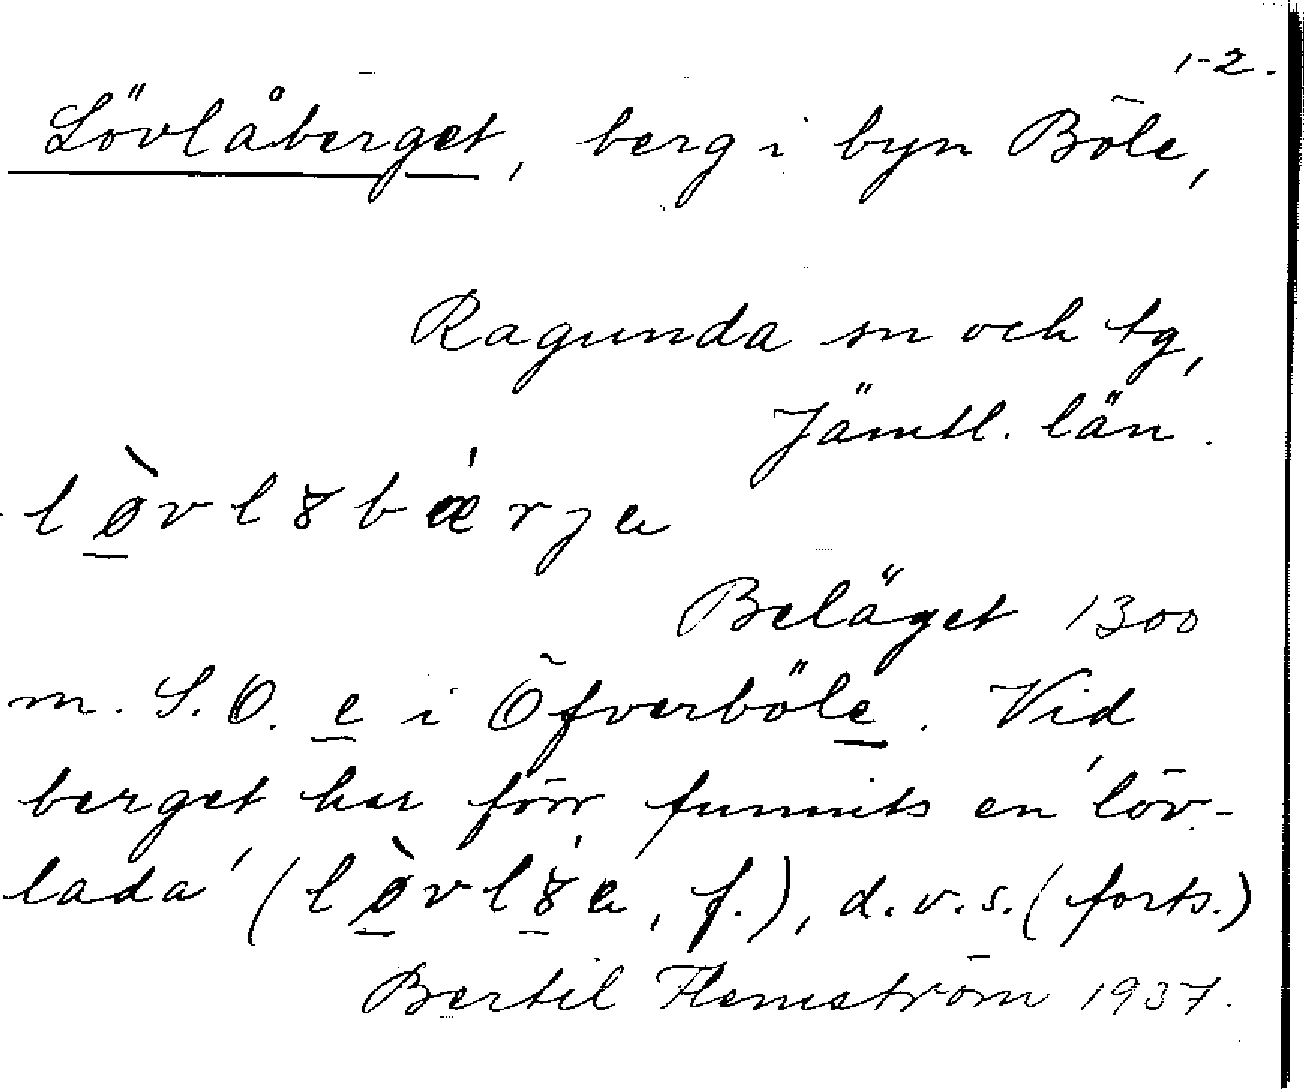 1-2.
Lövlåberget, berg i byn Böle,
Ragunda sn och tg,
Jämtl. län.
lø̀vlȣbǽrja
Beläget 1300
m. S.O. e i Öfverböle. Vid
berget har förr funnits en 'löv-
lada' (lø̀vlȣ́a, f.), d.v.s. (forts.)
Bertil Flemström 1937.